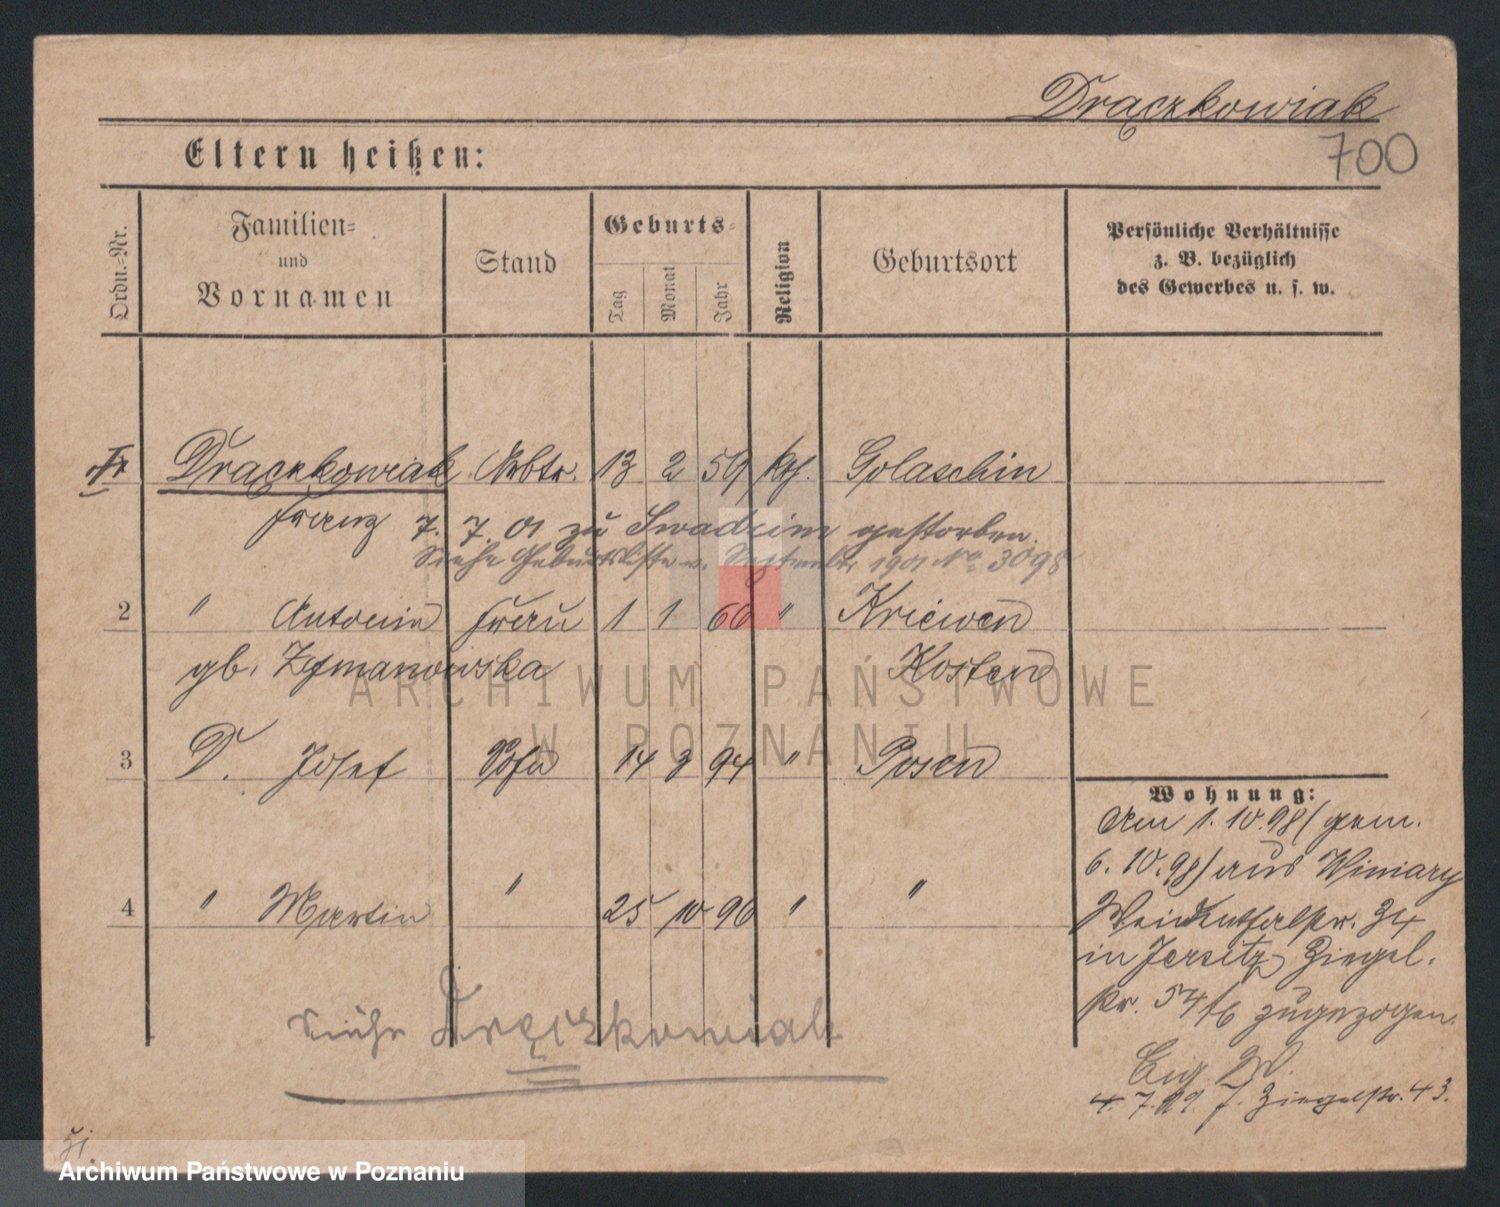 Drączkowiak
700
Eltern heißen:
Ordn.-Nr.
Familien-
und
Vornamen
Stand
Geburts-
Tag
Monat
Jahr
Religion
Geburtsort
Persönliche Verhältnisse
z. B. bezüglich
des Gewerbes u. s. w.
Drączkowiak Arbtr. 13 2 59 kth. Golaschin
Franz 7. 7. 01 zu Swadzim gestorben.
Siehe Geburtsliste v. September 1901 No 3098
2 " Antonin Frau 1 1 60 " Kriewen
gb. Kosten
3 D. Josef Sohn 14 3 94 " Posen
4 " Martin " 25 10 96 " "
siehe Dręczkowiak
Wohnung:
Am 1.10.98 (gem.
6.10.98) aus Winiary
34
in Jersitz Ziegel.
str. 54 zugezogen.
4. 7. 99 J. Ziegelstr. 43.
ARCHIWUM PAŃSTWOWE
W POZNANIU
Archiwum Państwowe w Poznaniu